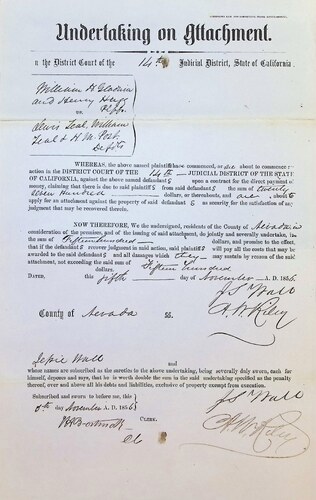 Undertaking on Attachment.
In the District Court of the 14th Judicial District, State of California.
William H
and Henry
Plffs
vs.
Lewis Teal, William
Teal & H. M. Post,
Defts
WHEREAS, the above named plaintiffs have commenced, or are about to commence an
action in the DISTRICT COURT OF THE 14th JUDICIAL DISTRICT OF THE STATE
OF CALIFORNIA, against the above named defendants upon a contract for the direct payment of
money, claiming that there is due to said plaintiffs from said defendants the sum of twenty
hundred dollars, or thereabouts, and are about to
apply for an attachment against the property of said defendants as security for the satisfaction of any
judgment that may be recovered therein.
NOW THEREFORE, We the undersigned, residents of the County of Nevada in
consideration of the premises, and of the issuing of said attachment, do jointly and severally undertake, in
the sum of Fifteen hundred dollars, and promise to the effect,
that if the defendants recover judgment in said action, said plaintiffs will pay all the costs that may be
awarded to the said defendants and all damages which they may sustain by reason of the said
attachment, not exceeding the sum of Fifteen hundred
dollars.
DATED, this fifth day of November A. D. 1856
J S Wall
County of Nevada ss.
Wall
and
whose names are subscribed as the sureties in the above undertaking, being severally duly sworn, each for
himself, deposes and says, that he is worth double the sum in the said undertaking specified as the penalty
thereof, over and above all his debts and liabilities, exclusive of property exempt from execution.
Subscribed and sworn to before me, this
5th day November A. D. 1856
J S Wall
CLERK.